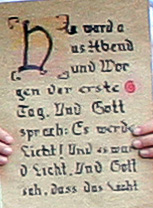 Es ward a
us Abend
und Mor
gen der erste
Tag. Und Gott
sprach: Es werde
Licht! Und es war
d Licht. Und Gott
sah, dass das Licht